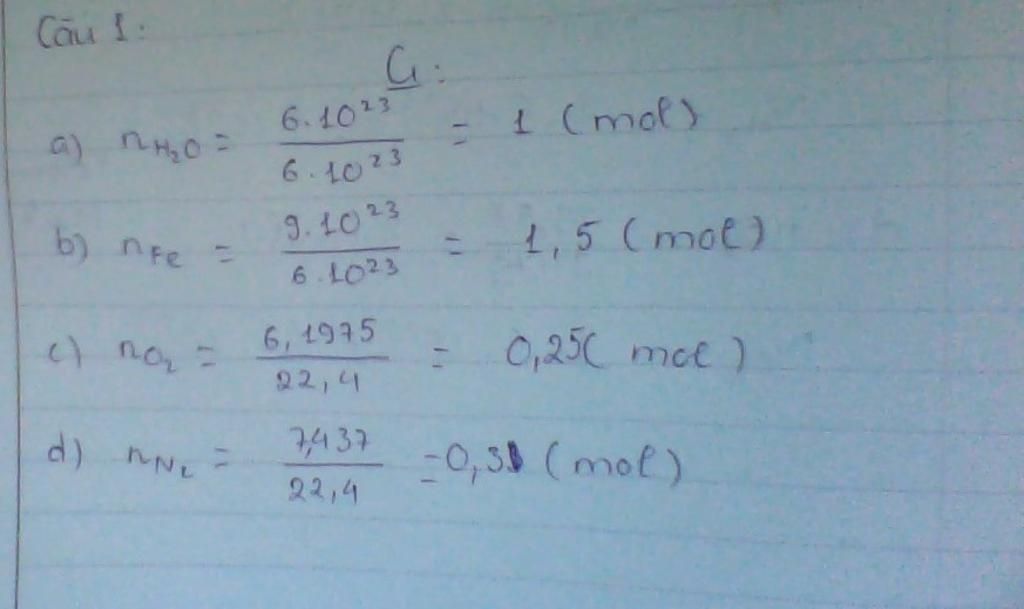 Câu 1:
G:
a) nH₂O = 6.10²³ / 6.10²³ = 1 (mol)
b) nFe = 9.10²³ / 6.10²³ = 1,5 (mol)
c) nO₂ = 6,1975 / 22,4 = 0,25( mol )
d) nN₂ = 7,437 / 22,4 = 0,3 (mol)